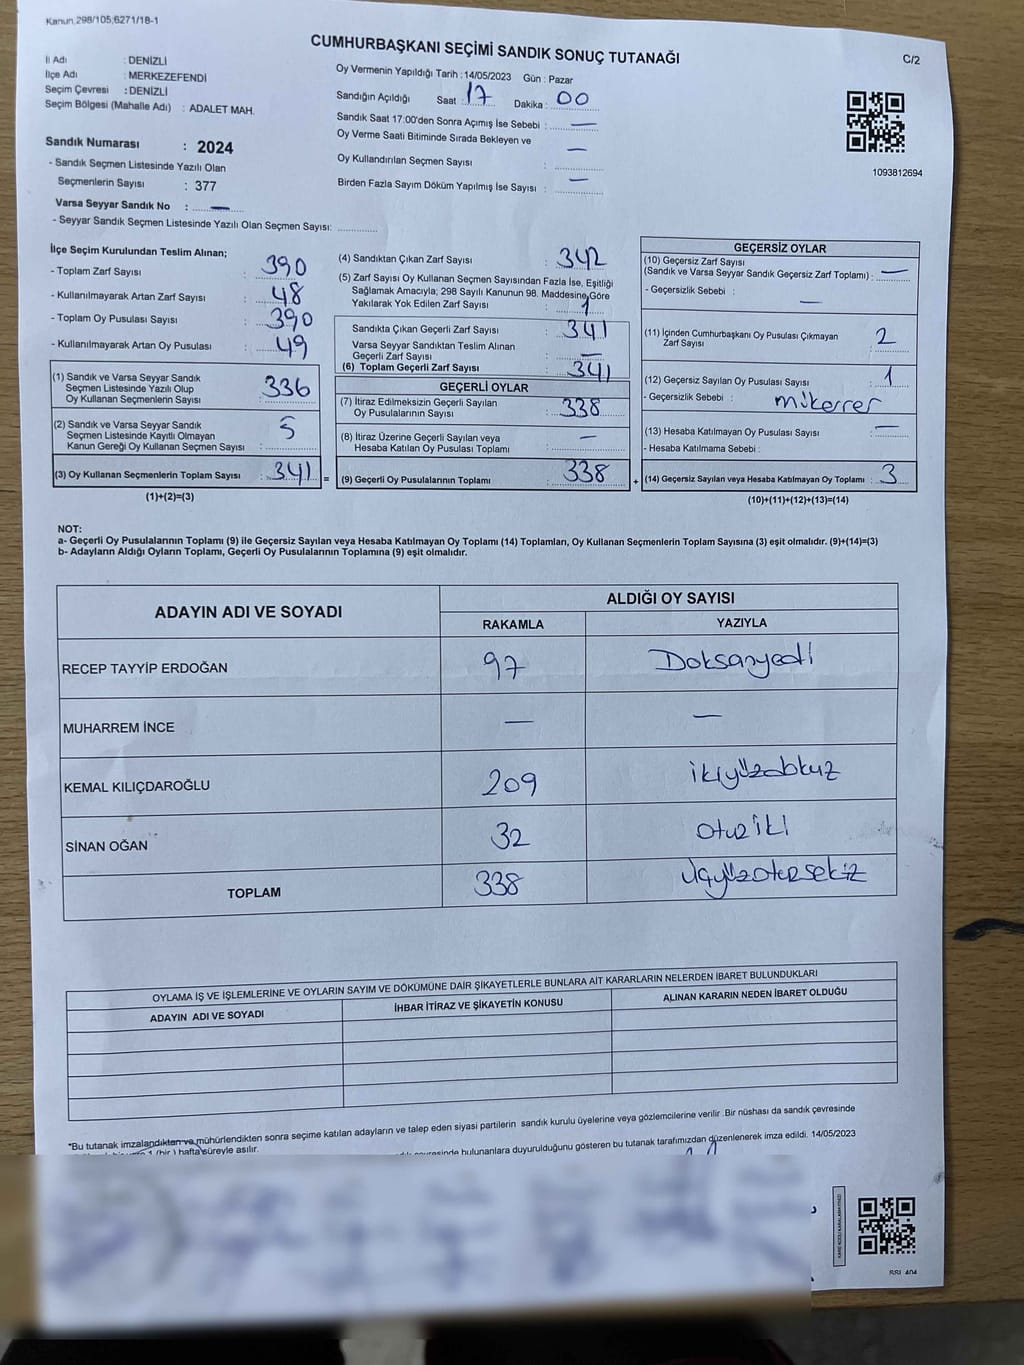 Kanun 298/105,6271/18-1
CUMHURBAŞKANI SEÇİMİ SANDIK SONUÇ TUTANAĞI
C/2
İl Adı : DENİZLİ
İlçe Adı : MERKEZEFENDİ
Seçim Çevresi : DENİZLİ
Seçim Bölgesi (Mahalle Adı) : ADALET MAH.
Sandık Numarası : 2024
- Sandık Seçmen Listesinde Yazılı Olan
Seçmenlerin Sayısı : 377
Varsa Seyyar Sandık No : —
- Seyyar Sandık Seçmen Listesinde Yazılı Olan Seçmen Sayısı:
Oy Vermenin Yapıldığı Tarih : 14/05/2023 Gün : Pazar
Sandığın Açıldığı Saat : 17 Dakika : 00
Sandık Saat 17:00'den Sonra Açılmış İse Sebebi : —
Oy Verme Saati Bitiminde Sırada Bekleyen ve —
Oy Kullandırılan Seçmen Sayısı :
Birden Fazla Sayım Döküm Yapılmış İse Sayısı : —
1093812694
İlçe Seçim Kurulundan Teslim Alınan;
- Toplam Zarf Sayısı : 390
- Kullanılmayarak Artan Zarf Sayısı : 48
- Toplam Oy Pusulası Sayısı : 390
- Kullanılmayarak Artan Oy Pusulası : 49
(1) Sandık ve Varsa Seyyar Sandık
Seçmen Listesinde Yazılı Olup
Oy Kullanan Seçmenlerin Sayısı : 336
(2) Sandık ve Varsa Seyyar Sandık
Seçmen Listesinde Kayıtlı Olmayan
Kanun Gereği Oy Kullanan Seçmen Sayısı : 5
(3) Oy Kullanan Seçmenlerin Toplam Sayısı : 341 =
(1)+(2)=(3)
(4) Sandıktan Çıkan Zarf Sayısı : 342
(5) Zarf Sayısı Oy Kullanan Seçmen Sayısından Fazla İse, Eşitliği
Sağlamak Amacıyla, 298 Sayılı Kanunun 98. Maddesine Göre
Yakılarak Yok Edilen Zarf Sayısı : 1
Sandıkta Çıkan Geçerli Zarf Sayısı : 341
Varsa Seyyar Sandıktan Teslim Alınan
Geçerli Zarf Sayısı : —
(6) Toplam Geçerli Zarf Sayısı : 341
GEÇERLİ OYLAR
(7) İtiraz Edilmeksizin Geçerli Sayılan
Oy Pusulalarının Sayısı : 338
(8) İtiraz Üzerine Geçerli Sayılan veya
Hesaba Katılan Oy Pusulası Toplamı : —
(9) Geçerli Oy Pusulalarının Toplamı : 338 +
GEÇERSİZ OYLAR
(10) Geçersiz Zarf Sayısı
(Sandık ve Varsa Seyyar Sandık Geçersiz Zarf Toplamı) : —
- Geçersizlik Sebebi : —
(11) İçinden Cumhurbaşkanı Oy Pusulası Çıkmayan
Zarf Sayısı : 2
(12) Geçersiz Sayılan Oy Pusulası Sayısı : 1
- Geçersizlik Sebebi : mükerrer
(13) Hesaba Katılmayan Oy Pusulası Sayısı : —
- Hesaba Katılmama Sebebi :
(14) Geçersiz Sayılan veya Hesaba Katılmayan Oy Toplamı : 3
(10)+(11)+(12)+(13)=(14)
NOT:
a- Geçerli Oy Pusulalarının Toplamı (9) ile Geçersiz Sayılan veya Hesaba Katılmayan Oy Toplamı (14) Toplamları, Oy Kullanan Seçmenlerin Toplam Sayısına (3) eşit olmalıdır. (9)+(14)=(3)
b- Adayların Aldığı Oyların Toplamı, Geçerli Oy Pusulalarının Toplamına (9) eşit olmalıdır.
ADAYIN ADI VE SOYADI ALDIĞI OY SAYISI
RAKAMLA YAZIYLA
RECEP TAYYİP ERDOĞAN 97 Doksanyedi
MUHARREM İNCE — —
KEMAL KILIÇDAROĞLU 209 ikiyüzdokuz
SİNAN OĞAN 32 otuziki
TOPLAM 338 Üçyüzotuzsekiz
OYLAMA İŞ VE İŞLEMLERİNE VE OYLARIN SAYIM VE DÖKÜMÜNE DAİR ŞİKAYETLERLE BUNLARA AİT KARARLARIN NELERDEN İBARET BULUNDUKLARI
ADAYIN ADI VE SOYADI İHBAR İTİRAZ VE ŞİKAYETİN KONUSU ALINAN KARARIN NEDEN İBARET OLDUĞU
*Bu tutanak imzalandıktan ve mühürlendikten sonra seçime katılan adayların ve talep eden siyasi partilerin sandık kurulu üyelerine veya gözlemcilerine verilir. Bir nüshası da sandık çevresinde
1 (bir) hafta süreyle asılır.
bulunanlara duyurulduğunu gösteren bu tutanak tarafımızdan düzenlenerek imza edildi. 14/05/2023